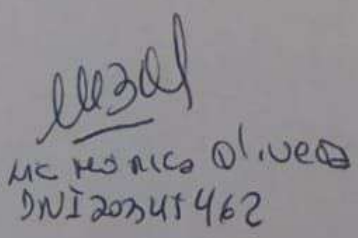 Mc Monica Olivera
DNI 20345462